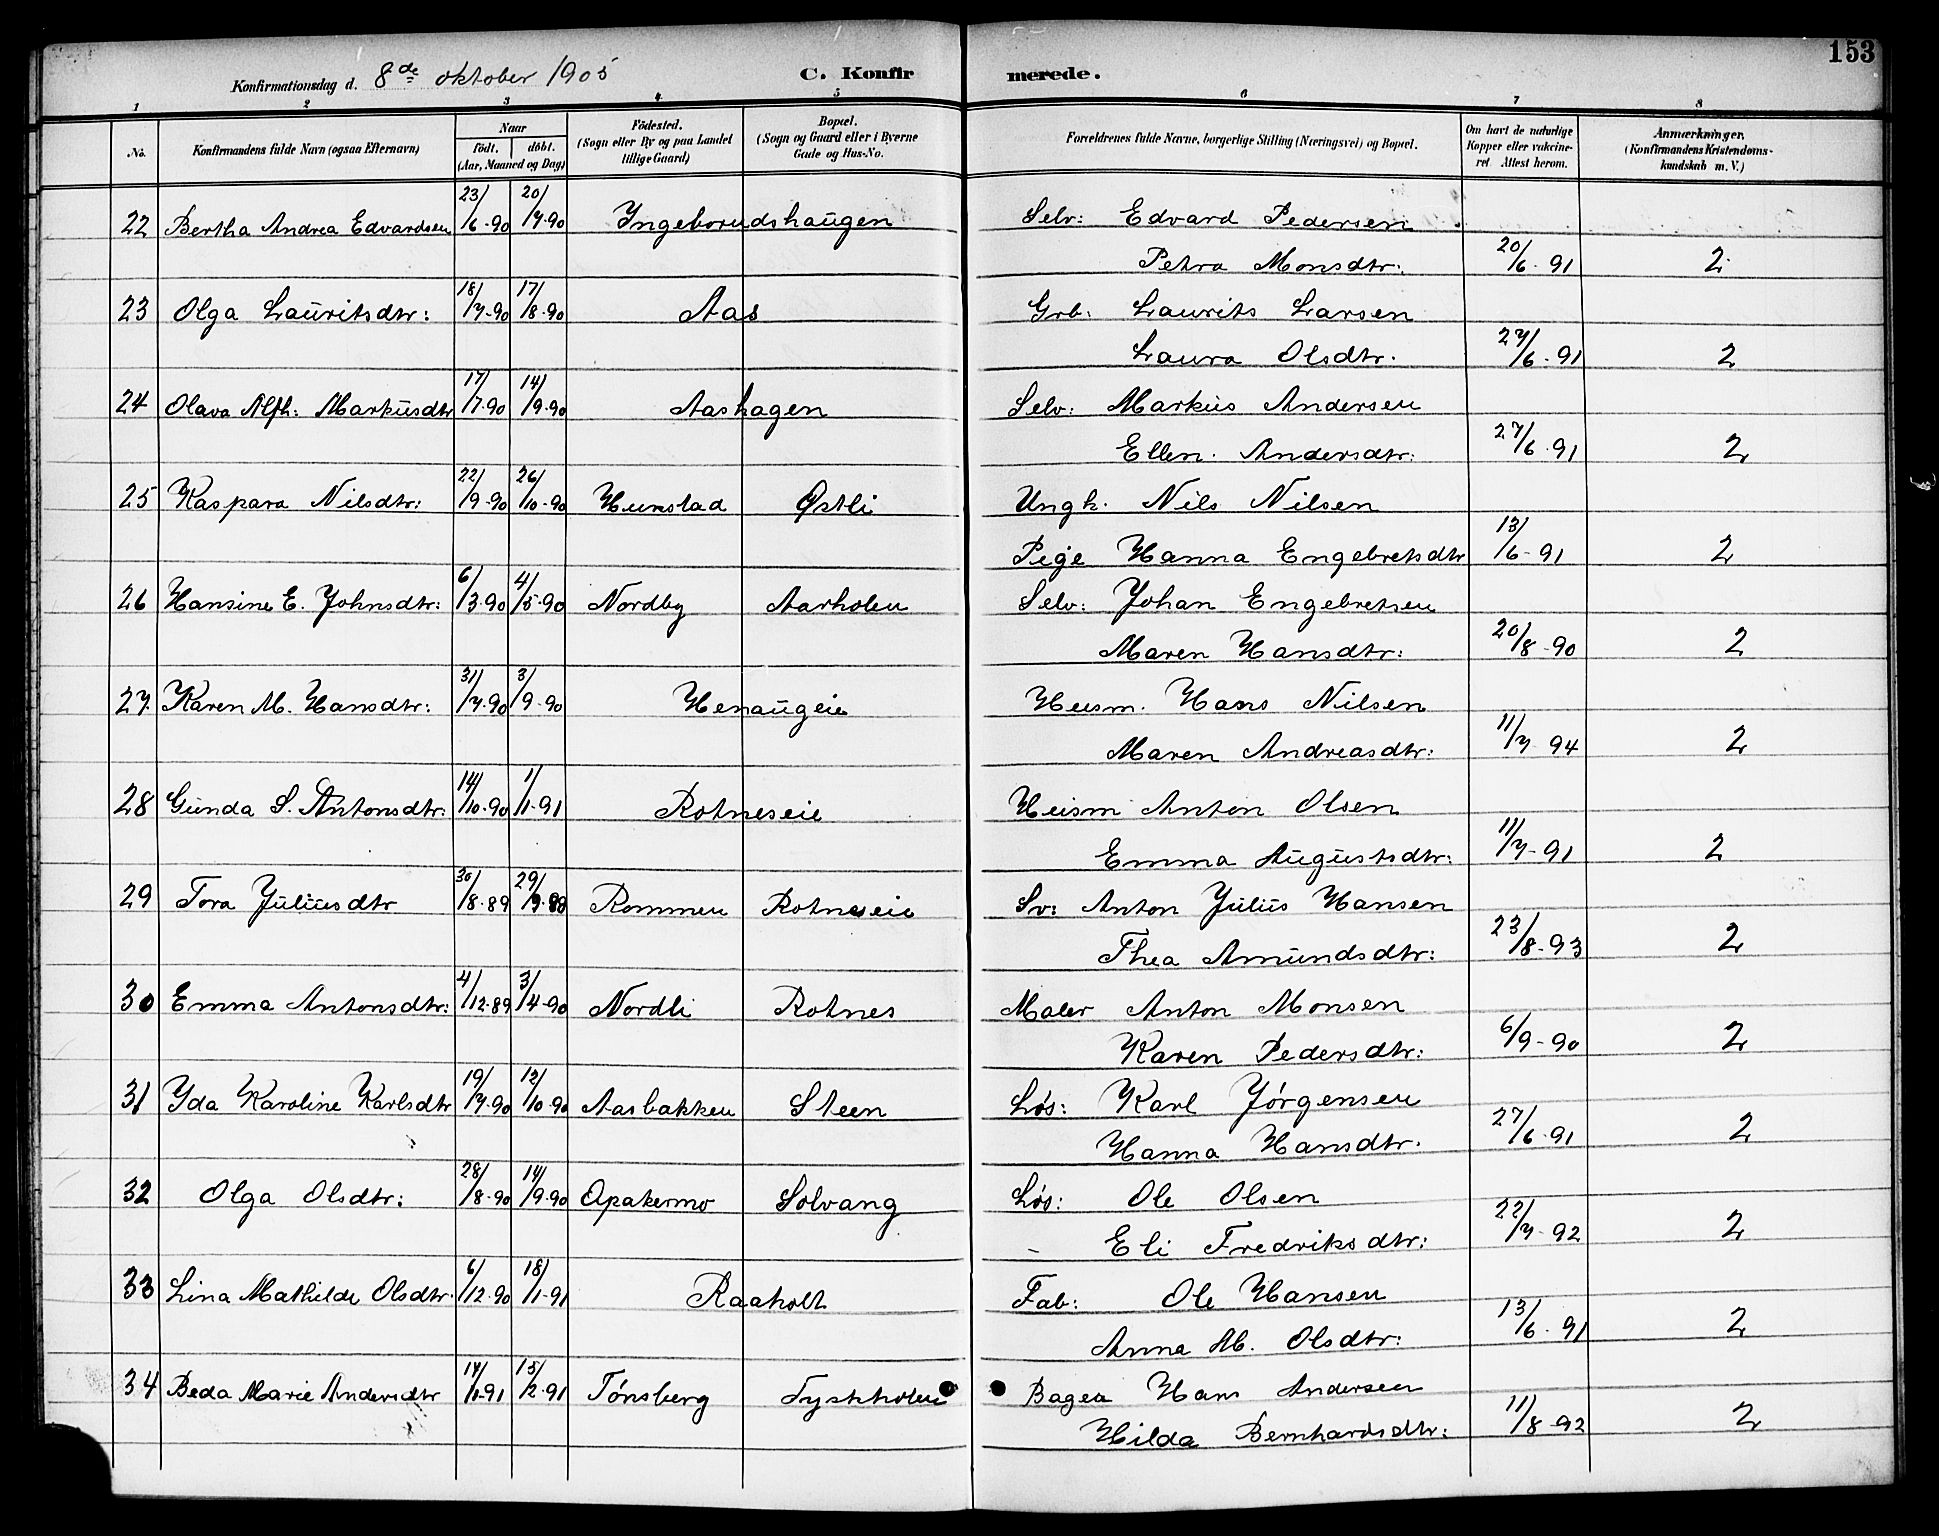 153
Konfirmationsdag d. 8de oktober 1905 C. Konfirmerede.
1 2 3 4 5 6 7 8
No. Konfirmandens fulde Navn (ogsaa Efternavn) Naar födt. döbt. (Aar, Maaned og Dag) Födested. (Sogn eller By og paa Landet tillige Gaard) Bopæl. (Sogn og Gaard eller i Byerne Gade og Hus-No. Forældrenes fulde Navne, borgerlige Stilling (Næringsvei) og Bopæl. Om havt de naturlige Kopper eller vakcineret. Attest herom. Anmærkninger. (Konfirmandens Kristendomskundskab m. V.)
22 Bertha Andrea Edvardsen 23/6-90 20/7-90 Ingeborudshaugen Selv: Edvard Pedersen
Petra Monsdtr. 20/6-91 2
23 Olga Lauritsdtr: 18/7-90 17/8-90 Aas Grb: Laurits Larsen
Laura Olsdtr. 27/6-91 2
24 Olava Alfh: Markusdtr 17/7-90 14/9-90 Aashagen Selv: Markus Andersen
Ellen Andersdtr: 27/6-91 2
25 Kaspara Nilsdtr: 22/9-90 26/10-90 Hunstad Østli Ungk. Nils Nilsen
Pige Hanna Engebretsdtr 13/6-91 2
26 Hansine E. Johnsdtr: 6/3-90 4/5-90 Nordby Aarholen Selv: Johan Engebretsen
Maren Hansdtr: 20/8-90 2
27 Karen M. Hansdtr: 31/7-90 3/9-90 Henaugeie Husm. Hans Nilsen
Maren Andreasdtr: 11/7-94 2
28 Gunda S. Antonsdtr: 14/10-90 1/1-91 Rotneseie Husm Anton Olsen
Emma Augustsdtr: 11/7-91 2
29 Tora Juliusdtr 30/8-89 29/9-89 Rommen Rotneseie Sv: Anton Julius Hansen
Thea Amundsdtr: 23/8-93 2
30 Emma Antonsdtr: 4/12-89 3/4-90 Nordli Rotnes Maler Anton Monsen
Karen Pedersdtr: 6/9-90 2
31 Yda Karoline Karlsdtr 19/7-90 12/10-90 Aasbakken Steen Løs: Karl Jørgensen
Hanna Hansdtr. 27/6-91 2
32 Olga Olsdtr: 28/8-90 14/9-90 Opakermo Solvang Løs: Ole Olsen
– Eli Fredriksdtr: 22/7-92 2
33 Lina Mathilde Olsdtr. 6/12-90 18/1-91 Raaholt Fab: Ole Hansen
Anna M. Olsdtr: 13/6-91 2
34 Beda Marie Andersdtr 17/1-91 15/2-91 Tønsberg Tyskholen Bager Hans Andersen
Hilda Bernhardsdtr: 11/8-92 2